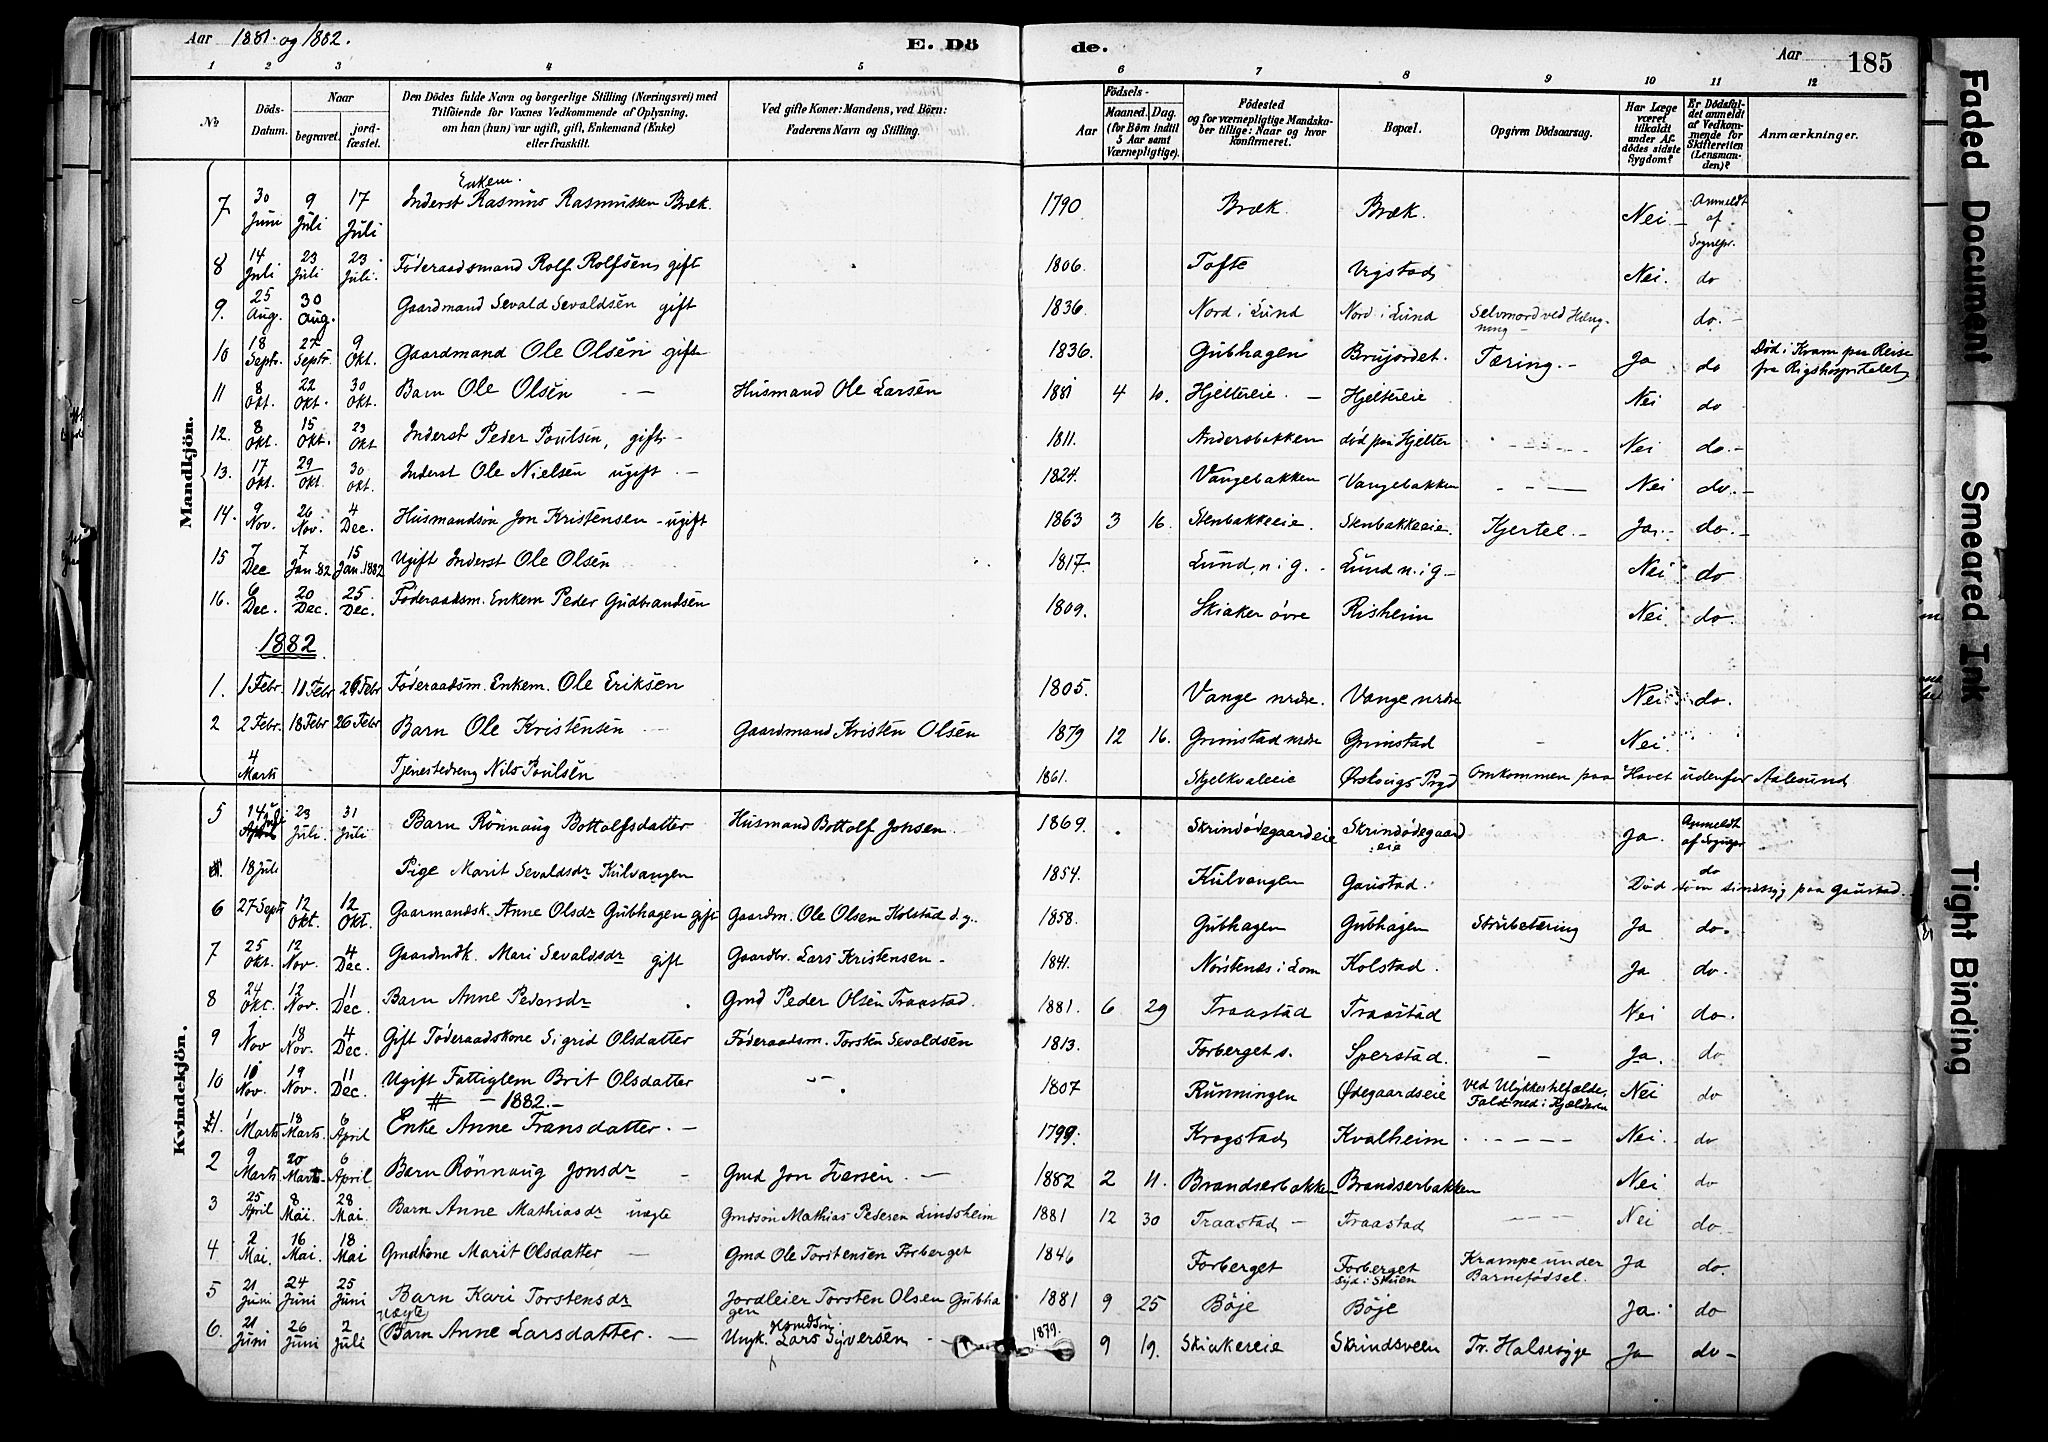 Aar 1881 og 1882.
E. Döde.
Aar 185
1 2 3 4 5 6 7 8 9 10 11 12
No
Döds-Datum.
Naar
begravet.
jord-fæstet.
Den Dödes fulde Navn og borgerlige Stilling (Næringsvei) med Tilföiende for Voxnes Vedkommende af Oplysning, om han (hun) var ugift, gift, Enkemand (Enke) eller fraskilt.
Ved gifte Koner: Mandens, ved Börn: Faderens Navn og Stilling.
Aar
Födsels-
Maaned. Dag.
(for Börn indtil 5 Aar samt Værnepligtige).
Födested og for værnepligtige Mandskaber tillige: Naar og hvor konfirmeret.
Bopæl.
Opgiven Dödsaarsag.
Har Læge været tilkaldt under Afdödes sidste Sygdom?
Er Dödsfaldet anmeldt af Vedkommende for Skifteretten (Lensmanden)?
Anmærkninger.
Mandkjön.
7 30 Juni 9 Juli 17 Juli Inderst Enkem. Rasmus Rasmussen Bræk. 1790 Bræk. Bræk. Nei Anmeldt af Sognepr.
8 14 Juli 23 Juli 23 Juli. Föderaadsmand Rolf Rolfsen, gift 1806. Tofte Nei. do
9. 25 Aug. 30 Aug. Gaardmand Sevald Sevaldsen gift 1836. Nord i Lund Nord i Lund Selvmord ved Hængning do.
10 18 Septr. 27 Septr. 9 Okt. Gaardmand Ole Olsen gift 1836. Gubhagen Brujordet. Tæring. Ja do Död i Kram paa Reise fra Rigshospitalet
11 8 Okt. 22 Okt. 30 Okt. Barn Ole Olsen Husmand Ole Larsen 1881 4 10. Hjeltereie. Hjeltereie Nei do
12. 8 Okt. 15 Okt. 23 Okt Inderst Peder Poulsen, gift 1811. Andersbakken död paa Hjelter Nei do.
13. 17 Okt. 29 Okt. 30 Okt. Inderst Ole Nielsen ugift. 1824. Vangebakken Vangebakken Nei do.
14. 9 Nov. 26 Nov. 4 Dec. Husmandsön Jon Kristensen - ugift 1863 3 16. Stenbakkeeie. Stenbakkeeie. Kjertel. Ja. do.
15 7 Dec 7 Jan. 82 15 Jan. 1882 Ugift Inderst Ole Olsen 1817. Lund, n. i g. Lund n. i g. Nei do
16. 6 Dec. 20 Dec. 25 Dec. Föderaadsm. Enkem Peder Gudbrandsen 1809. Skiaker övre Risheim Nei. do.
1882
1. 1 Febr. 11 Febr 26 Febr Föderaadsm. Enkem. Ole Eriksen 1805. Vange nrdre. Vange nrdre Nei do.
2 2 Febr. 18 Febr 26 Febr Barn Ole Kristensen Gaardmand Kristen Olsen 1879 12 16. Grimstad nrdre Grimstad Nei.
4 Marts Tjenestedreng Nils Poulsen 1861. Skjelkvaleeie Ørskougs Prgd Omkommen paa Havet udenfor Aalesund
Kvindekjön.
5 14 Juli 23 Juli. 31 Juli Barn Rönnaug Bottolfsdatter Husmand Bottolf Jonsen 1869. Skrindödegaardeie Skrindödegaardeie Ja. Anmeldt af Sognepr
18 Juli Pige Marit Sevaldsdr Kulvangen 1854. Kulvangen Gaustad. do Död som sindssyg paa Gaustad.
6 27 Septr 12 Okt. 12 Okt. Gaarmandsk. Anne Olsdr Gubhagen gift Gaardm. Ole Olsen Kolstad d. y. 1858. Gubhagen Gubhagen Strubetæring Ja do.
7 25 Okt. 12 Nov. 4 Dec. Gaardmdk. Mari Sevaldsdr gift Gaardbr. Lars Kristensen 1841. Norstenæs i Lom Kolstad. Ja do.
8 24 Okt. 12 Nov. 11 Dec. Barn Anne Pedersdr Gmd Peder Olsen Traastad. 1881. 6 29 Traastad Traastad Nei do.
9 7 Nov 18 Nov. 4 Dec. Gift Föderaadskone Sigrid Olsdatter Föderaadsm. Torsten Sevaldsen 1813. Forberget s. Sperstad. Ja. do
10 10 Nov. 19 Nov. 11 Dec. Ugift Fattiglem Brit Olsdatter 1807 Runningen Ødegaardseie Ved Ulykkestilfælde. Faldt ned i Kjælderen Nei do
1882.
1. 1 Marts 18 Marts. 6 April Enke Anne Fransdatter. 1799. Krogstad Kvalheim Nei. do
2 9 Marts 20 Marts 6 April Barn Rönnaug Jonsdr Gmd Jon Iversen. 1882 2 11. Brandserbakken Brandserbakken Nei do
3 25 April 8 Mai. 28 Mai. Barn Anne Mathiasdr uægte Gmdsön Mathias Pedersen Lindsheim 1881 12 30 Traastad Traastad Nei do.
4 2 Mai. 16 Mai. 18 Mai Gmdkone Marit Olsdatter Gmd Ole Torstensen Forberget 1846 Forberget Forberget syd i Skuen Krampe under Barnefödsel. Ja do.
5 21 Juni 24 Juni 25 Juni Barn Kari Torstensdr Jordleier Torsten Olsen Gubhagen 1881 9 25 Böje Böje Ja. do
6. 21 Juni 26 Juni 2 Juli uægte (Barn Anne Larsdatter. Ungk. Gmdsön. Lars Syversen 1879. 9 19. Skiakereie Skrindsveen Tr. Halsesyge Ja do
Faded Document
Smeared Ink
Tight Binding